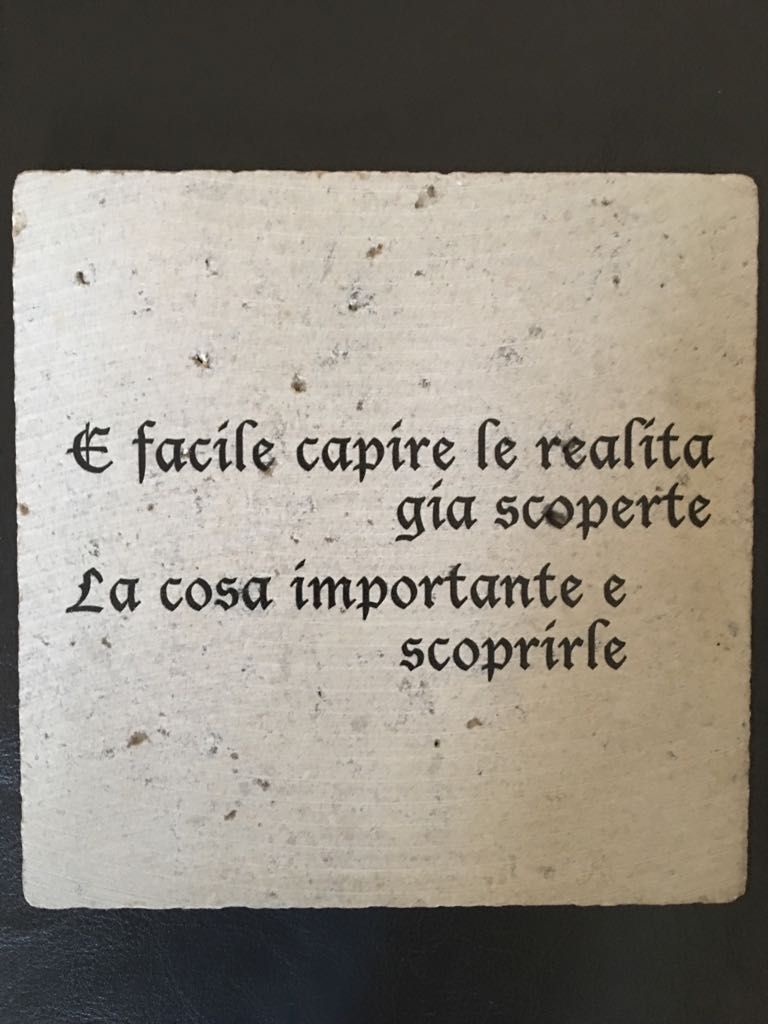 E facile capire le realita
gia scoperte
La cosa importante e
scoprirle